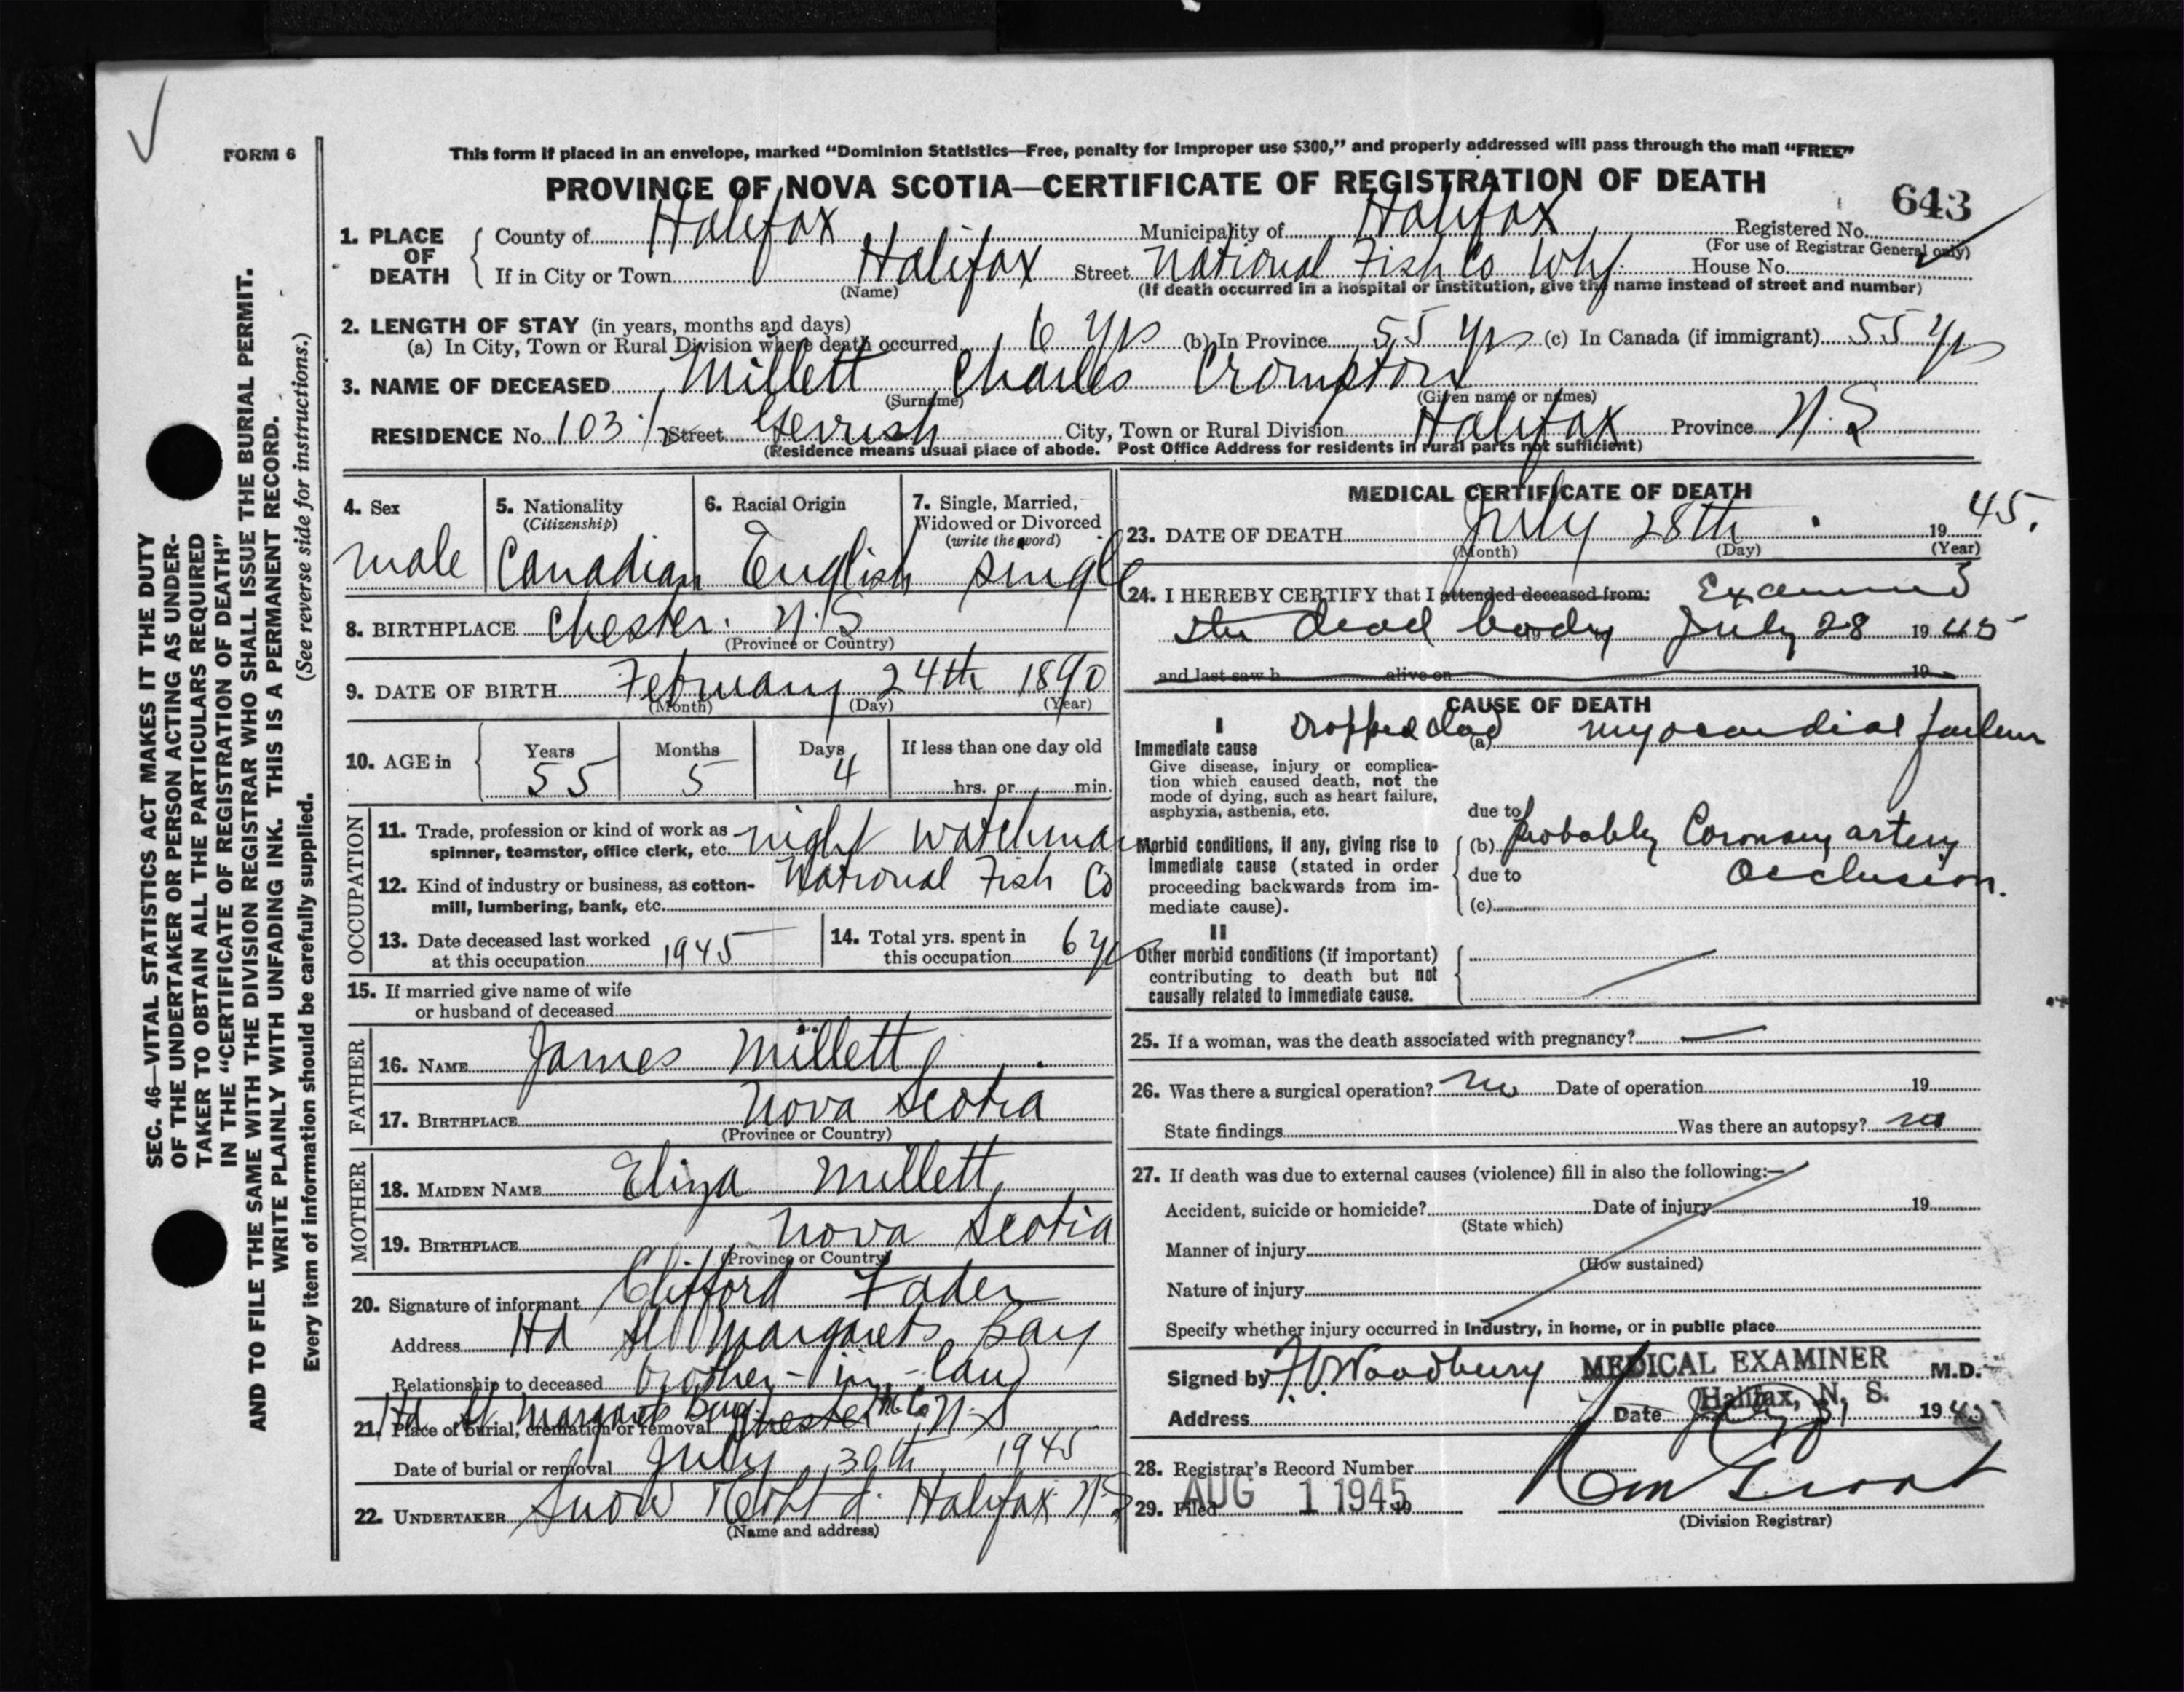 FORM 6
This form if placed in an envelope, marked “Dominion Statistics—Free, penalty for improper use $300,” and properly addressed will pass through the mail “FREE”
PROVINCE OF NOVA SCOTIA—CERTIFICATE OF REGISTRATION OF DEATH
643
1. PLACE OF DEATH County of Halifax Municipality of Halifax Registered No.
(For use of Registrar General only)
If in City or Town Halifax Street National Fish Co Whf. House No.
(Name) (If death occurred in a hospital or institution, give the name instead of street and number)
2. LENGTH OF STAY (in years, months and days)
(a) In City, Town or Rural Division where death occurred 6 yrs (b) In Province 55 yrs (c) In Canada (if immigrant) 55 yrs
3. NAME OF DECEASED Millett Charles Crompton
(Surname) (Given name or names)
RESIDENCE No. 103 1/2 Street Gerrish City, Town or Rural Division Halifax Province N.S
(Residence means usual place of abode. Post Office Address for residents in rural parts not sufficient)
4. Sex
male
5. Nationality
(Citizenship)
Canadian
6. Racial Origin
English
7. Single, Married, Widowed or Divorced
(write the word)
single
8. BIRTHPLACE Chester. N.S
(Province or Country)
9. DATE OF BIRTH February 24th 1890
(Month) (Day) (Year)
10. AGE in Years Months Days If less than one day old
55 5 4 hrs. or min.
OCCUPATION
11. Trade, profession or kind of work as spinner, teamster, office clerk, etc. night watchman
12. Kind of industry or business, as cotton-mill, lumbering, bank, etc. National Fish Co
13. Date deceased last worked at this occupation 1945
14. Total yrs. spent in this occupation 6 yrs
15. If married give name of wife
or husband of deceased
FATHER
16. NAME James Millett
17. BIRTHPLACE Nova Scotia
(Province or Country)
MOTHER
18. MAIDEN NAME Eliza Millett
19. BIRTHPLACE Nova Scotia
(Province or Country)
20. Signature of informant Clifford Fader
Address Hd St Margarets Bay
Relationship to deceased brother-in-law
21. Place of burial, cremation or removal Hd St Margarets Bay Chester Hfx Co N.S
Date of burial or removal July 30th 1945
22. UNDERTAKER Snow & Co Ltd. Halifax N.S
(Name and address)
MEDICAL CERTIFICATE OF DEATH
23. DATE OF DEATH July 28th 1945.
(Month) (Day) (Year)
24. I HEREBY CERTIFY that I attended deceased from: Examined
the dead body July 28 1945
and last saw h alive on 19
CAUSE OF DEATH
I
Immediate cause Dropped dead (a) myocardial failure
Give disease, injury or complication which caused death, not the mode of dying, such as heart failure, asphyxia, asthenia, etc.
due to
Morbid conditions, if any, giving rise to immediate cause (stated in order proceeding backwards from immediate cause).
(b) probably Coronary artery
due to Occlusion.
(c)
II
Other morbid conditions (if important) contributing to death but not causally related to immediate cause.
25. If a woman, was the death associated with pregnancy? —
26. Was there a surgical operation? no Date of operation 19
State findings Was there an autopsy? no
27. If death was due to external causes (violence) fill in also the following:—
Accident, suicide or homicide? Date of injury 19
(State which)
Manner of injury
(How sustained)
Nature of injury
Specify whether injury occurred in industry, in home, or in public place
Signed by Woodbury MEDICAL EXAMINER M.D.
Address Halifax, N. S. Date July 31 1945
28. Registrar's Record Number
29. Filed AUG 1 1945 19
(Division Registrar)
SEC. 46—VITAL STATISTICS ACT MAKES IT THE DUTY
OF THE UNDERTAKER OR PERSON ACTING AS UNDER-
TAKER TO OBTAIN ALL THE PARTICULARS REQUIRED
IN THE “CERTIFICATE OF REGISTRATION OF DEATH”
AND TO FILE THE SAME WITH THE DIVISION REGISTRAR WHO SHALL ISSUE THE BURIAL PERMIT.
WRITE PLAINLY WITH UNFADING INK. THIS IS A PERMANENT RECORD.
Every item of information should be carefully supplied. (See reverse side for instructions.)